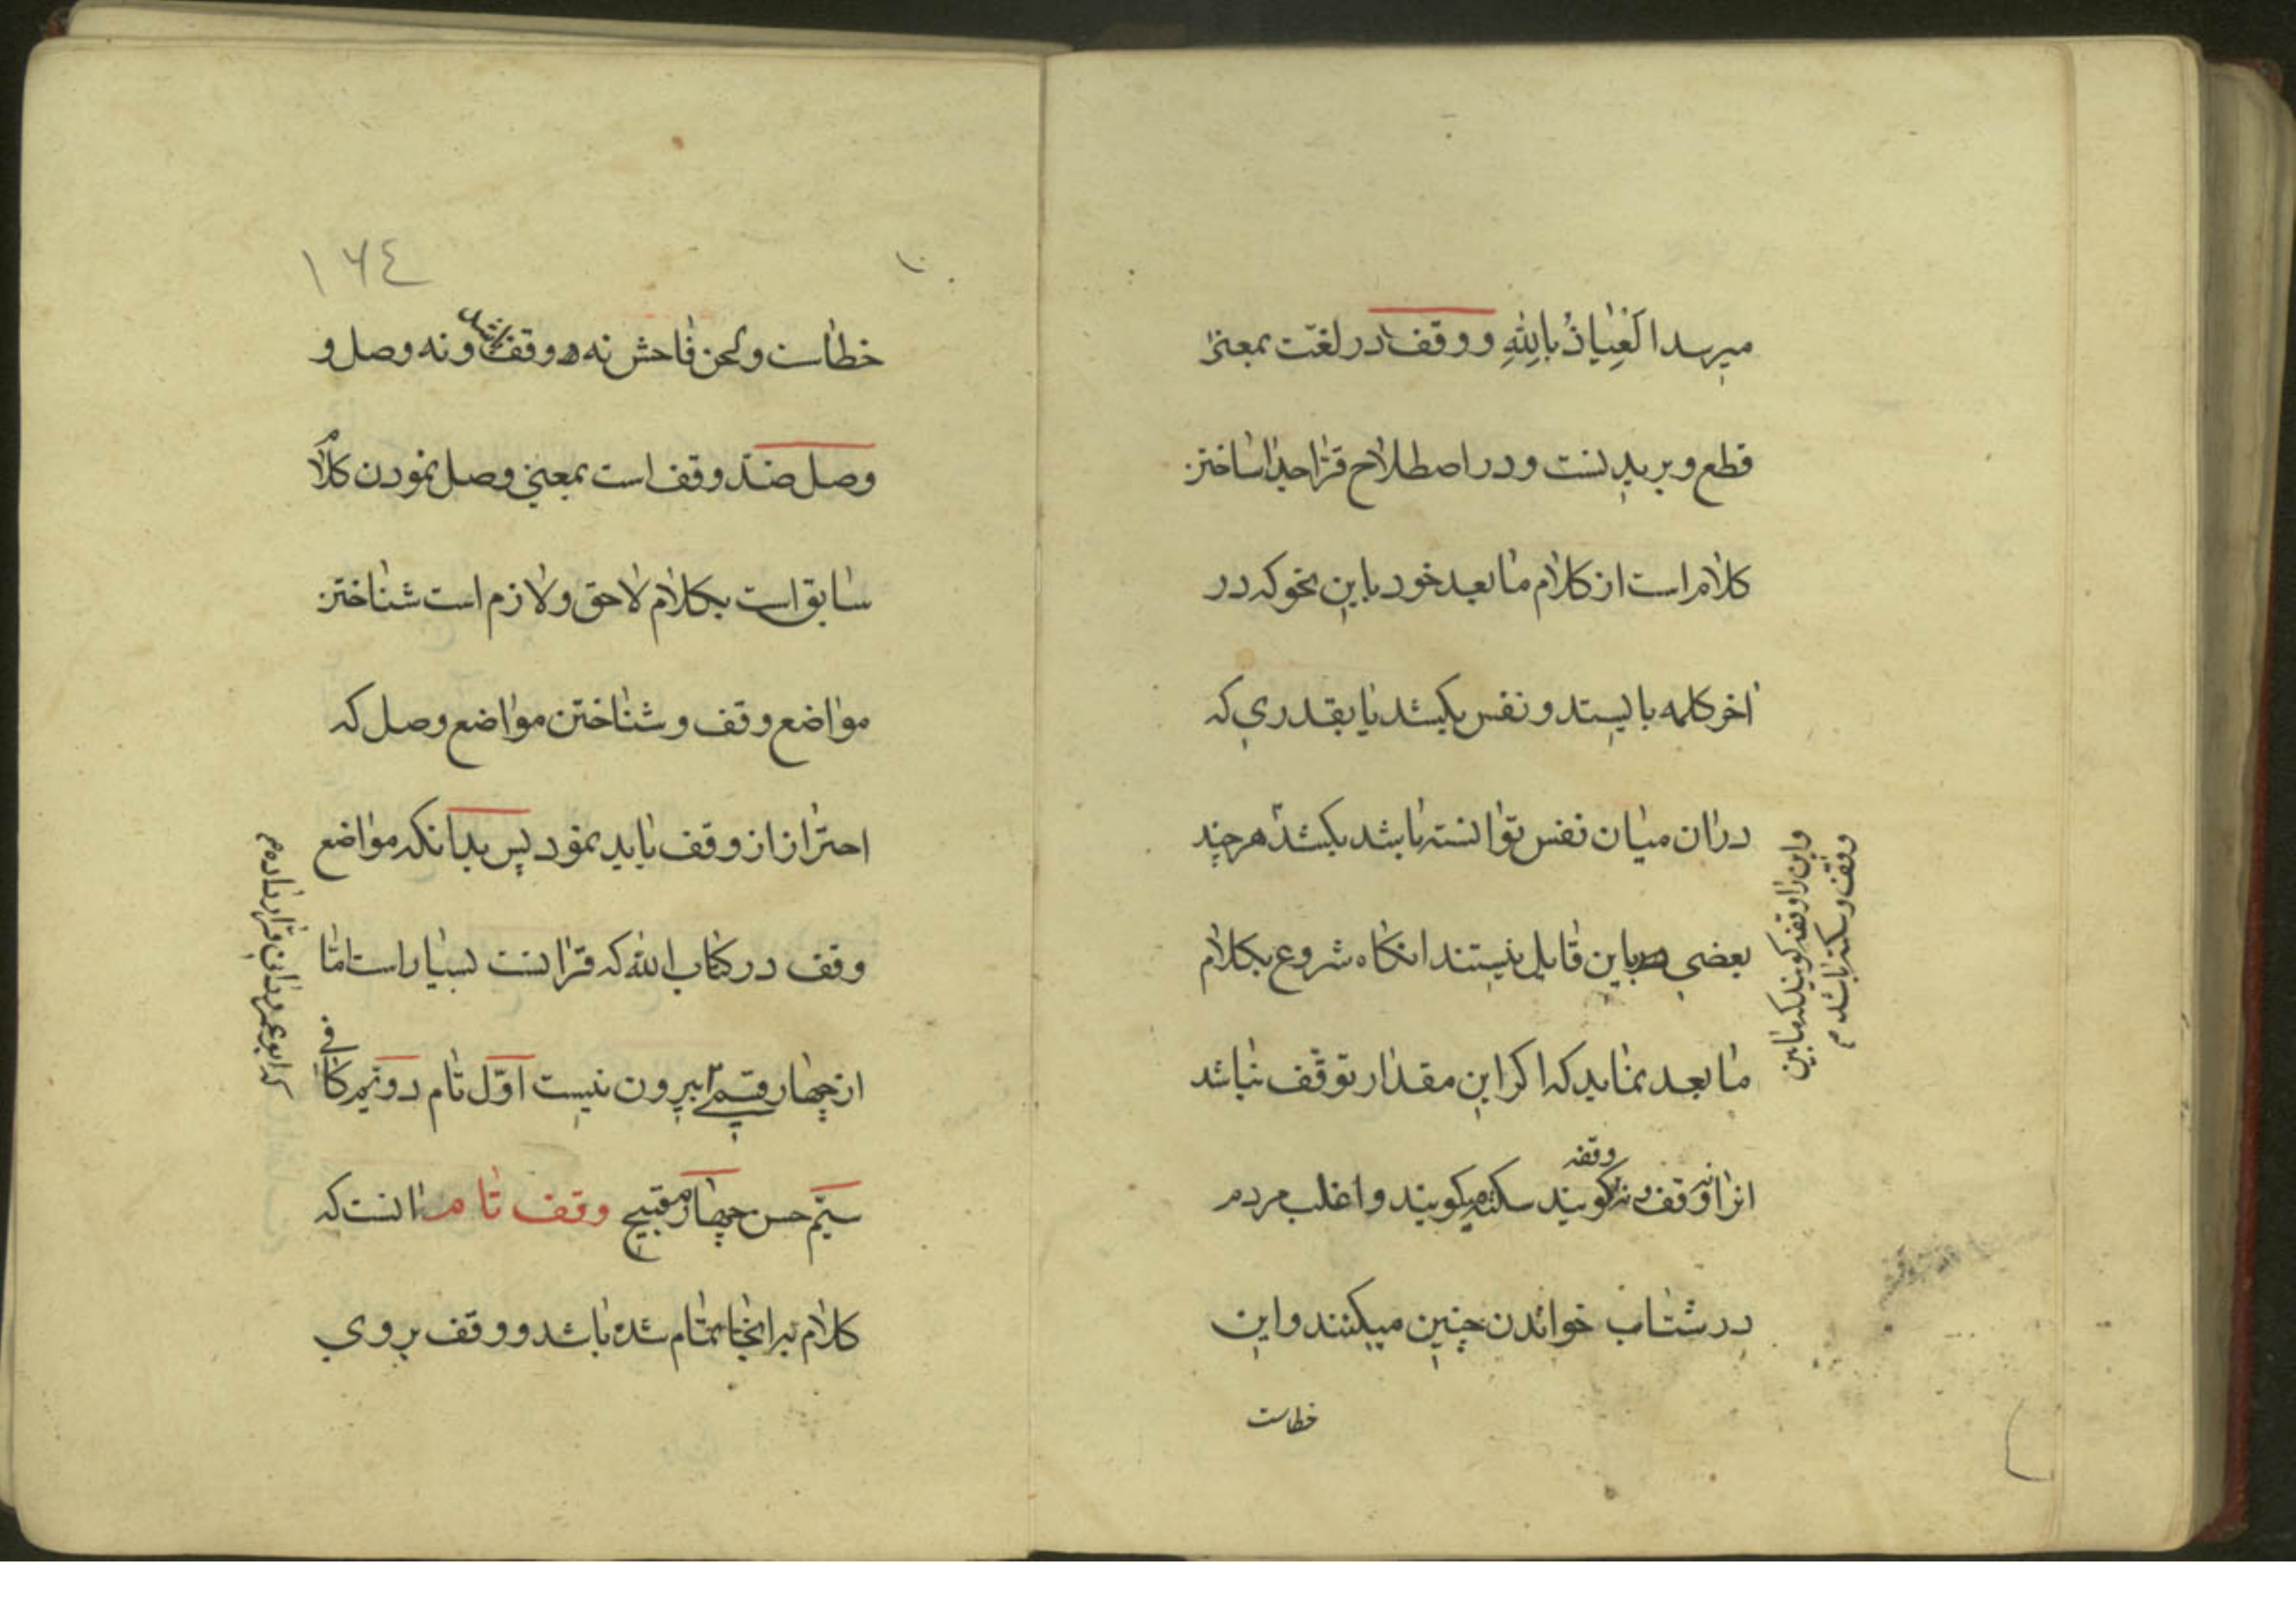 میرسد العِیاذُ بِاللهِ و وقف در لغت بمعنی
قطع و بریدنست و در اصطلاح قرّا جدا ساختن
کلام است از کلام ما بعد خود باین نحو که در
اخر کلمه بایستد و نفس بکشد یا بقدری که
دران میان نفس توانسته باشد بکشد هر چند
بعضی باین قایل نیستند انکاه شروع بکلام
ما بعد نماید که اکر این مقدار توقّف نباشد
انرا وقف و نه وقفه کویند سکته میکویند و اغلب مردم
در شتاب خواندن چنین میکنند و این
خطاست
و این را وقفه کویند که ما بین
وقف و سکته باشد م
۱۶٤
خطاست و لحن فاحش نه وقف باشد و نه وصل و
وصل ضدّ وقف است بمعنی وصل نمودن کلام
سابق است بکلام لاحق و لازم است شناختن
مواضع وقف و شناختن مواضع وصل که
احتراز از وقف باید نمود پس بدانکه مواضع
وقف در کتاب الله که قرانست بسیار است امّا
از چهار قسم بیرون نیست اوّل تام دویم کافی
سیّم حسن چهارم قبیح وقف تام انست که
کلام برانجا تمام شده باشد و وقف بروی
که ابو عمرو دانی قرار داده م